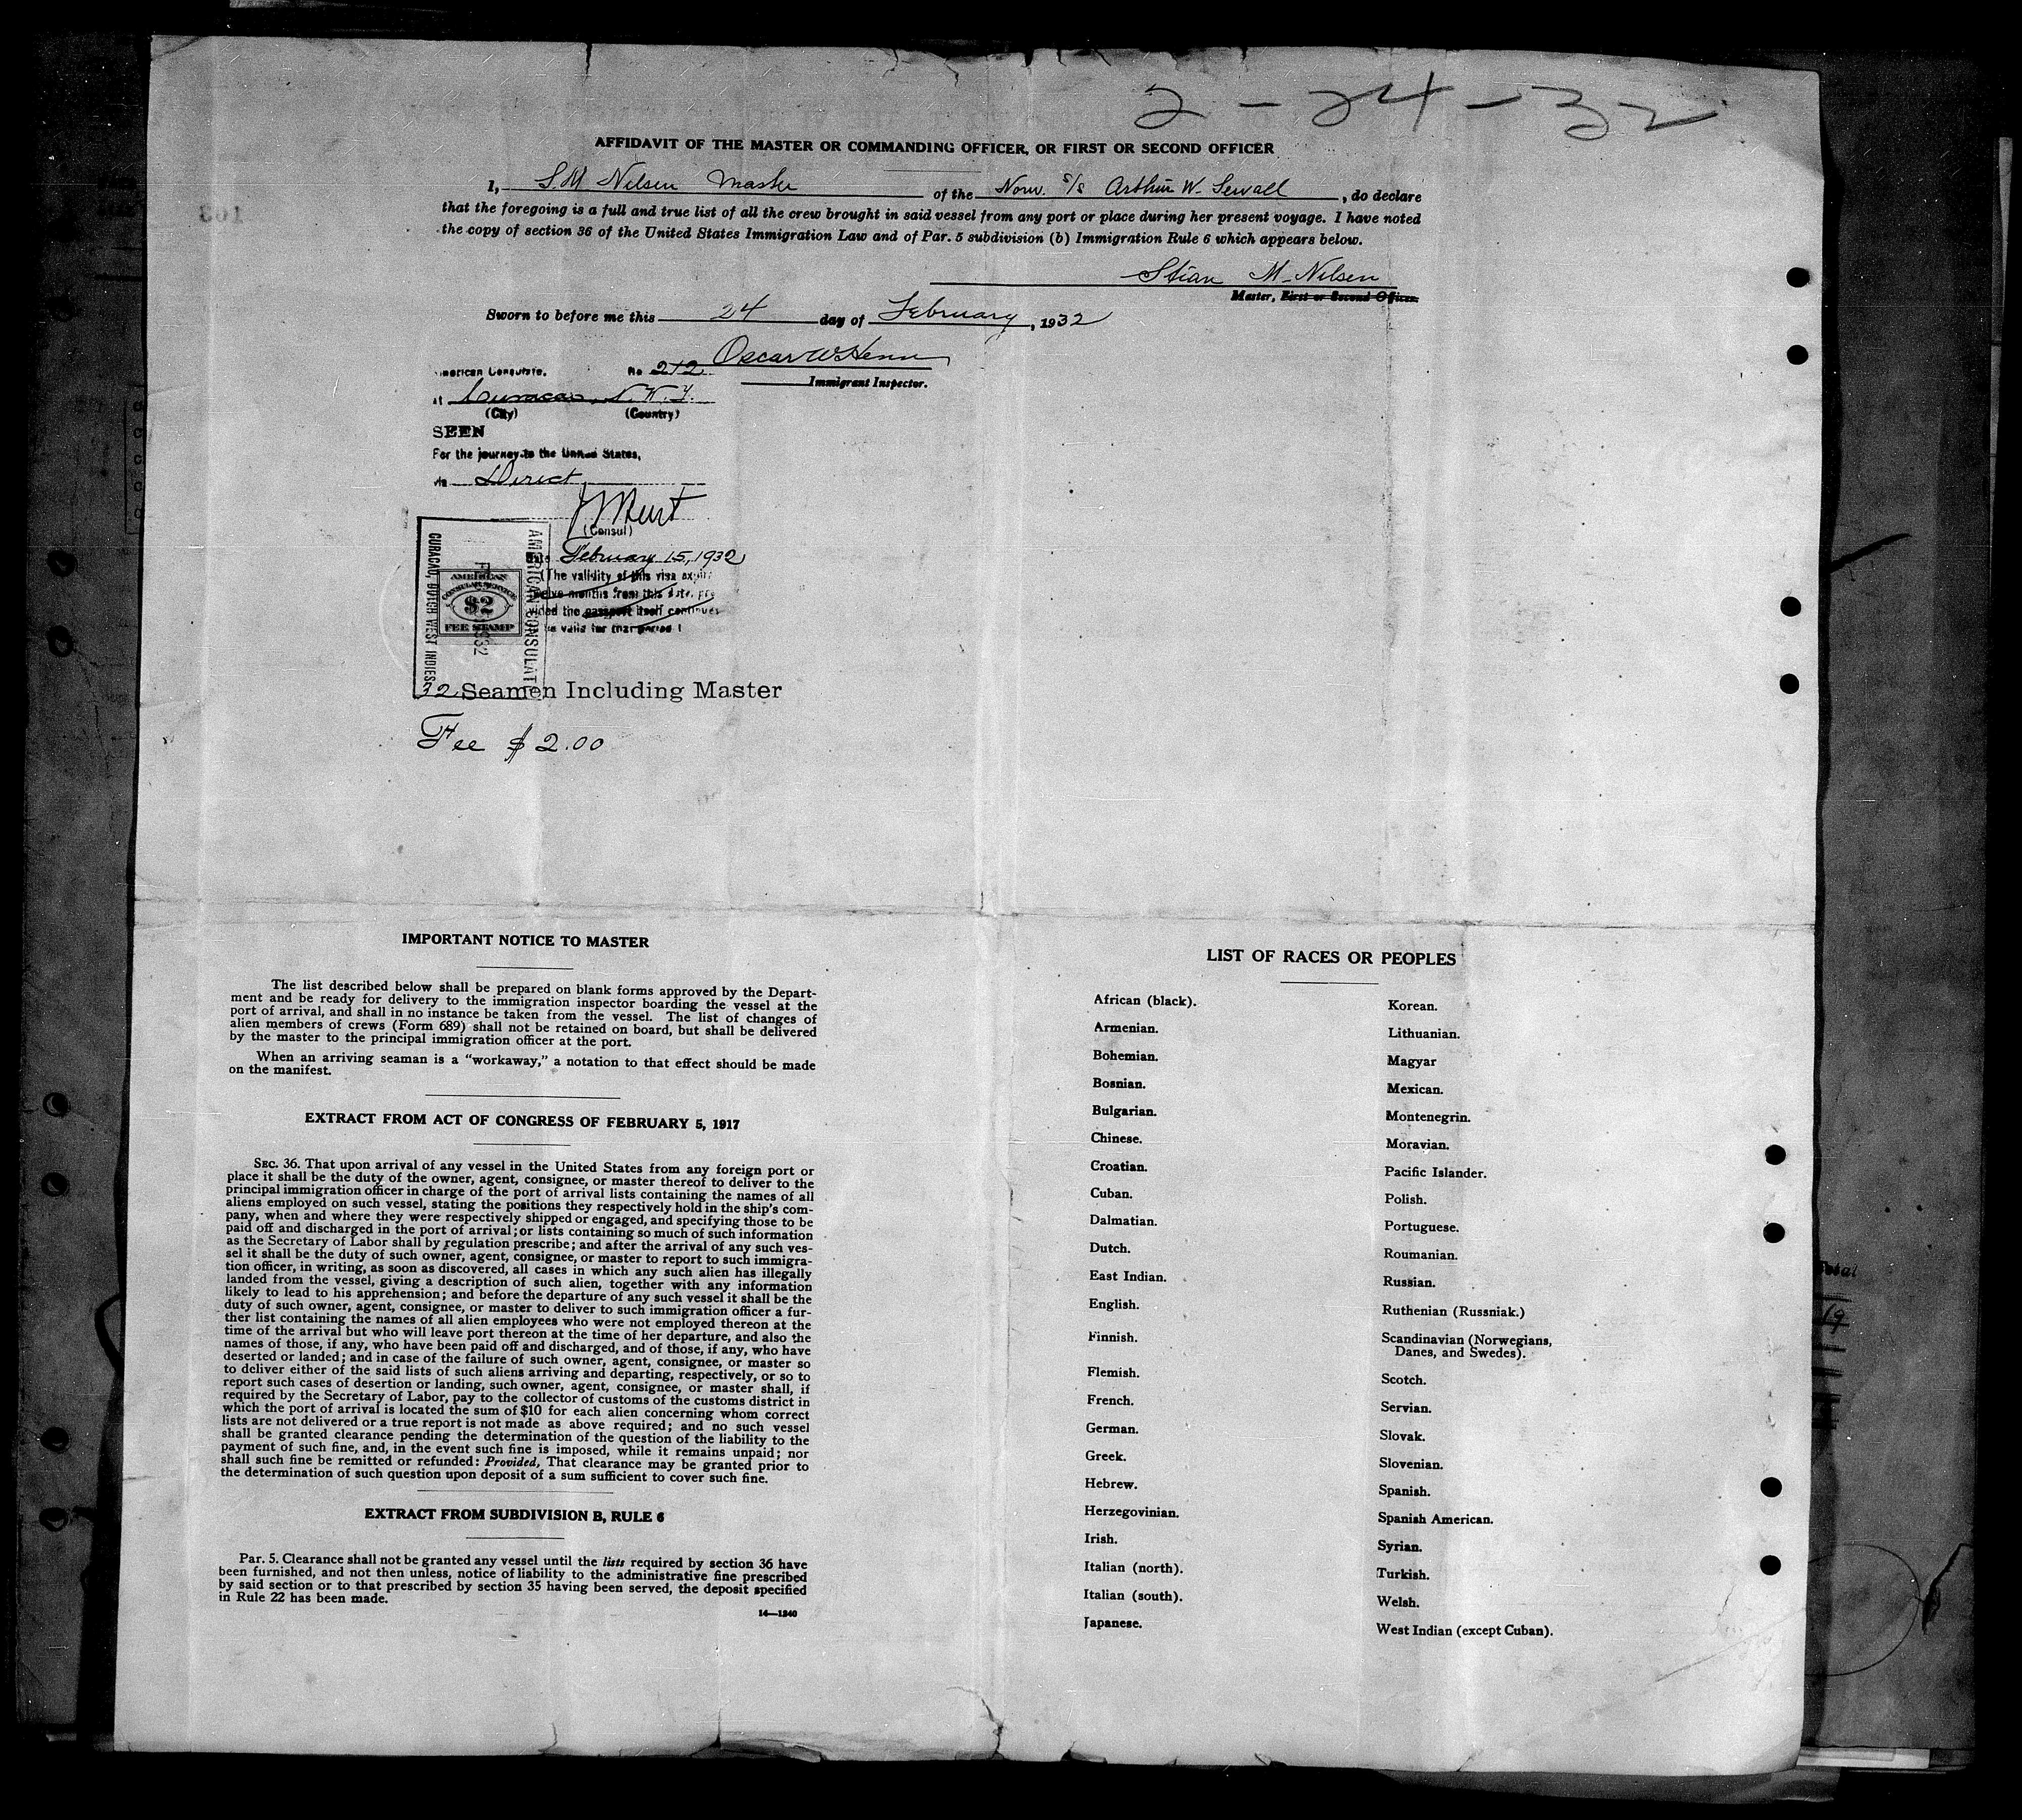 2-24-32
AFFIDAVIT OF THE MASTER OR COMMANDING OFFICER, OR FIRST OR SECOND OFFICER
I, S. M Nilsen Master of the Norw. s/s Arthur W. Sewall, do declare
that the foregoing is a full and true list of all the crew brought in said vessel from any port or place during her present voyage. I have noted
the copy of section 36 of the United States Immigration Law and of Par. 5 subdivision (b) Immigration Rule 6 which appears below.
Stian M. Nilsen
Master, First or Second Officer.
Sworn to before me this 24 day of February, 1932
Oscar W Henn
Immigrant Inspector.
American Consulate. No 212
at Curacao, N. W. I.
(City) (Country)
SEEN
For the journey to the United States,
via Direct
(Consul)
Date February 15, 1932
(The validity of this visa expires
twelve months from this date, pro
vided the passport itself continues
be valid for that period)
AMERICAN CONSULAT
CURACAO, DUTCH WEST INDIES
AMERICAN
CONSULAR SERVICE
$2
FEE STAMP
1932
32 Seamen Including Master
Fee $2.00
IMPORTANT NOTICE TO MASTER
The list described below shall be prepared on blank forms approved by the Depart-
ment and be ready for delivery to the immigration inspector boarding the vessel at the
port of arrival, and shall in no instance be taken from the vessel. The list of changes of
alien members of crews (Form 689) shall not be retained on board, but shall be delivered
by the master to the principal immigration officer at the port.
When an arriving seaman is a “workaway,” a notation to that effect should be made
on the manifest.
EXTRACT FROM ACT OF CONGRESS OF FEBRUARY 5, 1917
SEC. 36. That upon arrival of any vessel in the United States from any foreign port or
place it shall be the duty of the owner, agent, consignee, or master thereof to deliver to the
principal immigration officer in charge of the port of arrival lists containing the names of all
aliens employed on such vessel, stating the positions they respectively hold in the ship's com-
pany, when and where they were respectively shipped or engaged, and specifying those to be
paid off and discharged in the port of arrival; or lists containing so much of such information
as the Secretary of Labor shall by regulation prescribe; and after the arrival of any such ves-
sel it shall be the duty of such owner, agent, consignee, or master to report to such immigra-
tion officer, in writing, as soon as discovered, all cases in which any such alien has illegally
landed from the vessel, giving a description of such alien, together with any information
likely to lead to his apprehension; and before the departure of any such vessel it shall be the
duty of such owner, agent, consignee, or master to deliver to such immigration officer a fur-
ther list containing the names of all alien employees who were not employed thereon at the
time of the arrival but who will leave port thereon at the time of her departure, and also the
names of those, if any, who have been paid off and discharged, and of those, if any, who have
deserted or landed; and in case of the failure of such owner, agent, consignee, or master so
to deliver either of the said lists of such aliens arriving and departing, respectively, or so to
report such cases of desertion or landing, such owner, agent, consignee, or master shall, if
required by the Secretary of Labor, pay to the collector of customs of the customs district in
which the port of arrival is located the sum of $10 for each alien concerning whom correct
lists are not delivered or a true report is not made as above required; and no such vessel
shall be granted clearance pending the determination of the question of the liability to the
payment of such fine, and, in the event such fine is imposed, while it remains unpaid; nor
shall such fine be remitted or refunded: Provided, That clearance may be granted prior to
the determination of such question upon deposit of a sum sufficient to cover such fine.
EXTRACT FROM SUBDIVISION B, RULE 6
Par. 5. Clearance shall not be granted any vessel until the lists required by section 36 have
been furnished, and not then unless, notice of liability to the administrative fine prescribed
by said section or to that prescribed by section 35 having been served, the deposit specified
in Rule 22 has been made.
14—1240
LIST OF RACES OR PEOPLES
African (black).
Armenian.
Bohemian.
Bosnian.
Bulgarian.
Chinese.
Croatian.
Cuban.
Dalmatian.
Dutch.
East Indian.
English.
Finnish.
Flemish.
French.
German.
Greek.
Hebrew.
Herzegovinian.
Irish.
Italian (north).
Italian (south).
Japanese.
Korean.
Lithuanian.
Magyar
Mexican.
Montenegrin.
Moravian.
Pacific Islander.
Polish.
Portuguese.
Roumanian.
Russian.
Ruthenian (Russniak.)
Scandinavian (Norwegians,
Danes, and Swedes).
Scotch.
Servian.
Slovak.
Slovenian.
Spanish.
Spanish American.
Syrian.
Turkish.
Welsh.
West Indian (except Cuban).